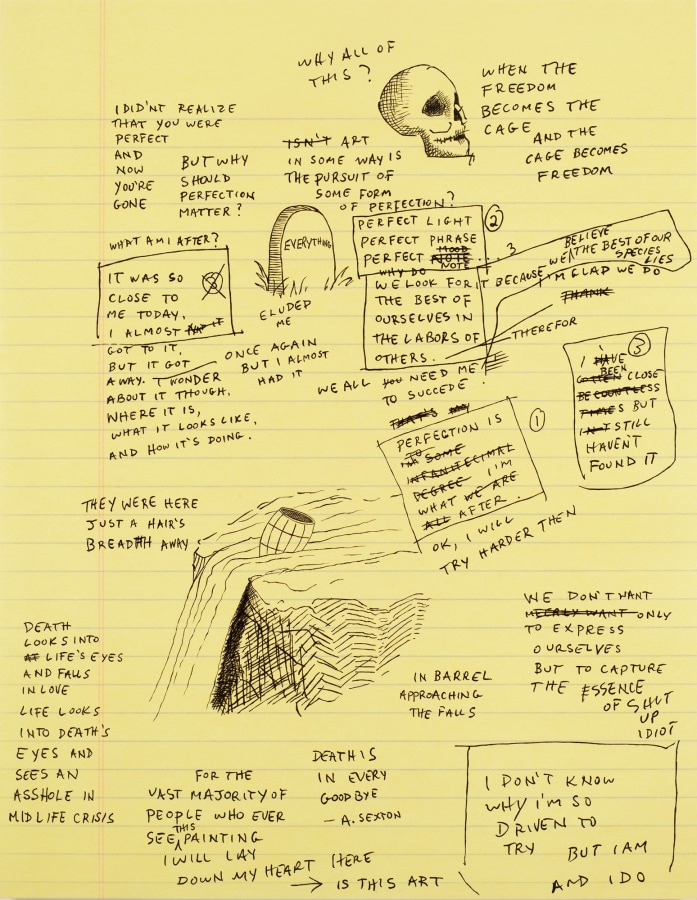 WHY ALL OF
THIS?
WHEN THE
FREEDOM
BECOMES THE
CAGE AND THE
CAGE BECOMES
FREEDOM
I DID'NT REALIZE
THAT YOU WERE
PERFECT
AND
NOW
YOU'RE
GONE
BUT WHY
SHOULD
PERFECTION
MATTER?
ISN'T ART
IN SOME WAY IS
THE PURSUIT OF
SOME FORM
OF PERFECTION?
EVERYTHING
ELUDED
ME
2
PERFECT LIGHT
PERFECT PHRASE
PERFECT MOOD
NOTE . . . . 3
WHY DO
WE LOOK FOR IT BECAUSE
THE BEST OF
OURSELVES IN
THE LABORS OF
OTHERS.
WE BELIEVE
THE BEST OF OUR
SPECIES
LIES
I'M GLAD WE DO
THANK
THEREFOR
WE ALL YOU NEED ME
TO SUCCEDE.
WHAT AM I AFTER?
IT WAS SO
CLOSE TO
ME TODAY,
I ALMOST HAD IT
GOT TO IT,
BUT IT GOT
AWAY. I WONDER
ABOUT IT THOUGH,
WHERE IT IS,
WHAT IT LOOKS LIKE,
AND HOW IT'S DOING.
ONCE AGAIN
BUT I ALMOST
HAD IT
3
I HAVE
BEEN
GOTTEN CLOSE
BE COUNTLESS
TIMES BUT
IN IT STILL
HAVEN'T
FOUND IT
THAT'S MY
1
PERFECTION IS
TO SOME
INFANITECIMAL
DEGREE I'M
WHAT WE ARE
ALL AFTER.
OK, I WILL
TRY HARDER THEN
THEY WERE HERE
JUST A HAIR'S
BREADTH AWAY.
DEATH
LOOKS INTO
AT LIFE'S EYES
AND FALLS
IN LOVE
LIFE LOOKS
INTO DEATH'S
EYES AND
SEES AN
ASSHOLE IN
MIDLIFE CRISIS
IN BARREL
APPROACHING
THE FALLS
WE DON'T WANT
MEERLY WANT ONLY
TO EXPRESS
OURSELVES
BUT TO CAPTURE
THE ESSENCE
OF SHUT
UP
IDIOT
FOR THE
VAST MAJORITY OF
PEOPLE WHO EVER
SEE THIS PAINTING
I WILL LAY
DOWN MY HEART HERE
→ IS THIS ART
DEATH IS
IN EVERY
GOODBYE
— A. SEXTON
I DON'T KNOW
WHY I'M SO
DRIVEN TO
TRY BUT I AM
AND I DO